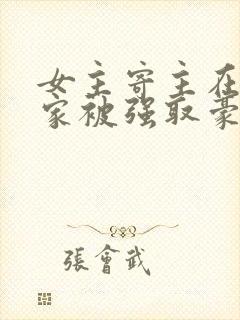 女主寄主在
家被强取豪
張會武